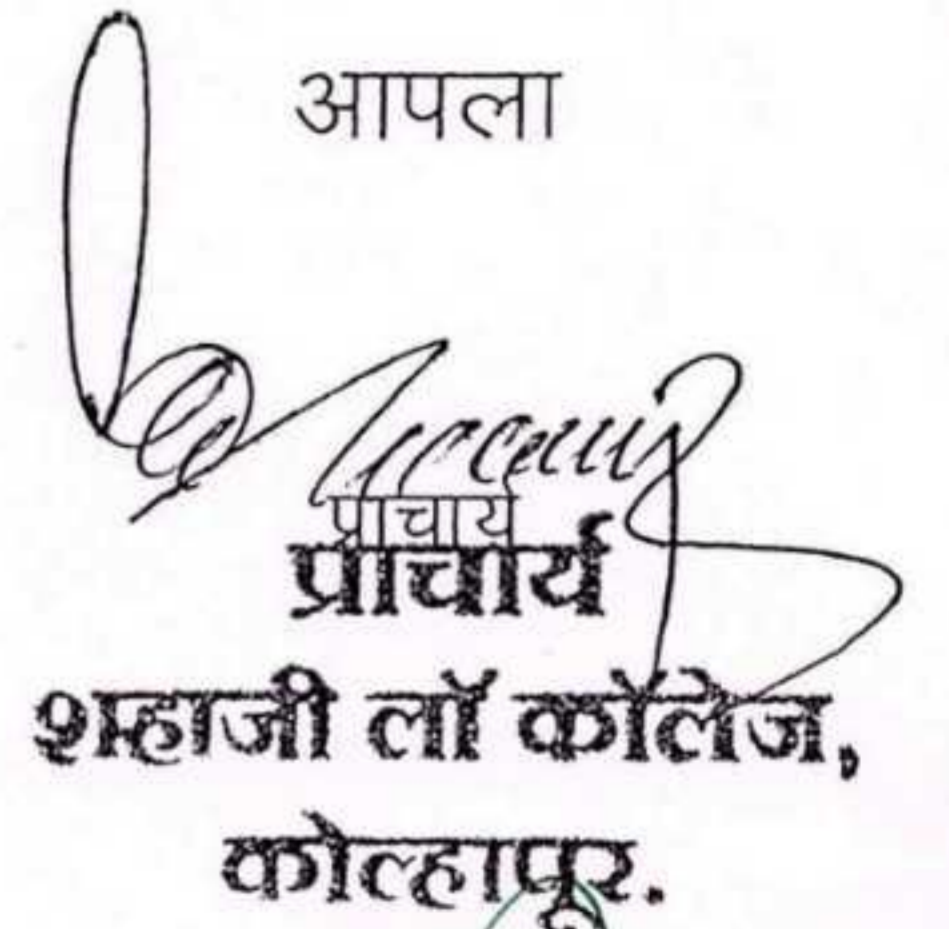 आपला
प्राचार्य
प्राचार्य
शहाजी लॉ कॉलेज,
कोल्हापूर.